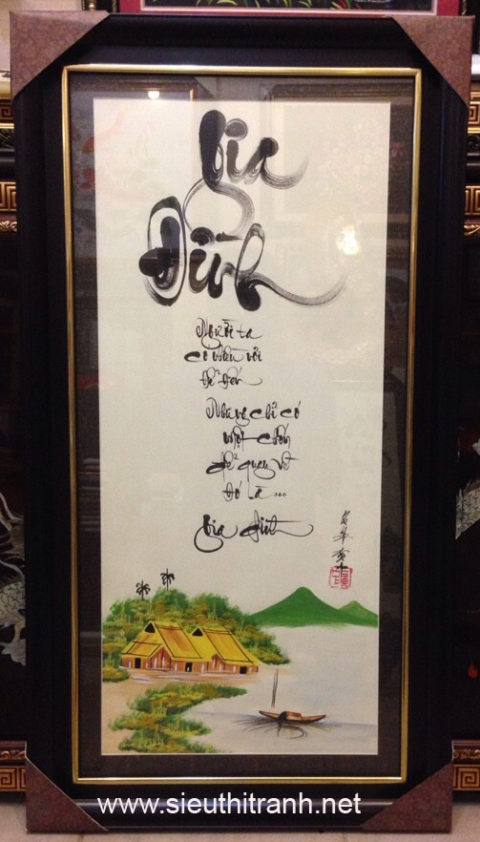 Gia
Đình
Người ta
có nhiều nơi
để đến
Nhưng chỉ có
một chốn
để quay về
Đó Là ...
Gia Đình
www.sieuthitranh.net